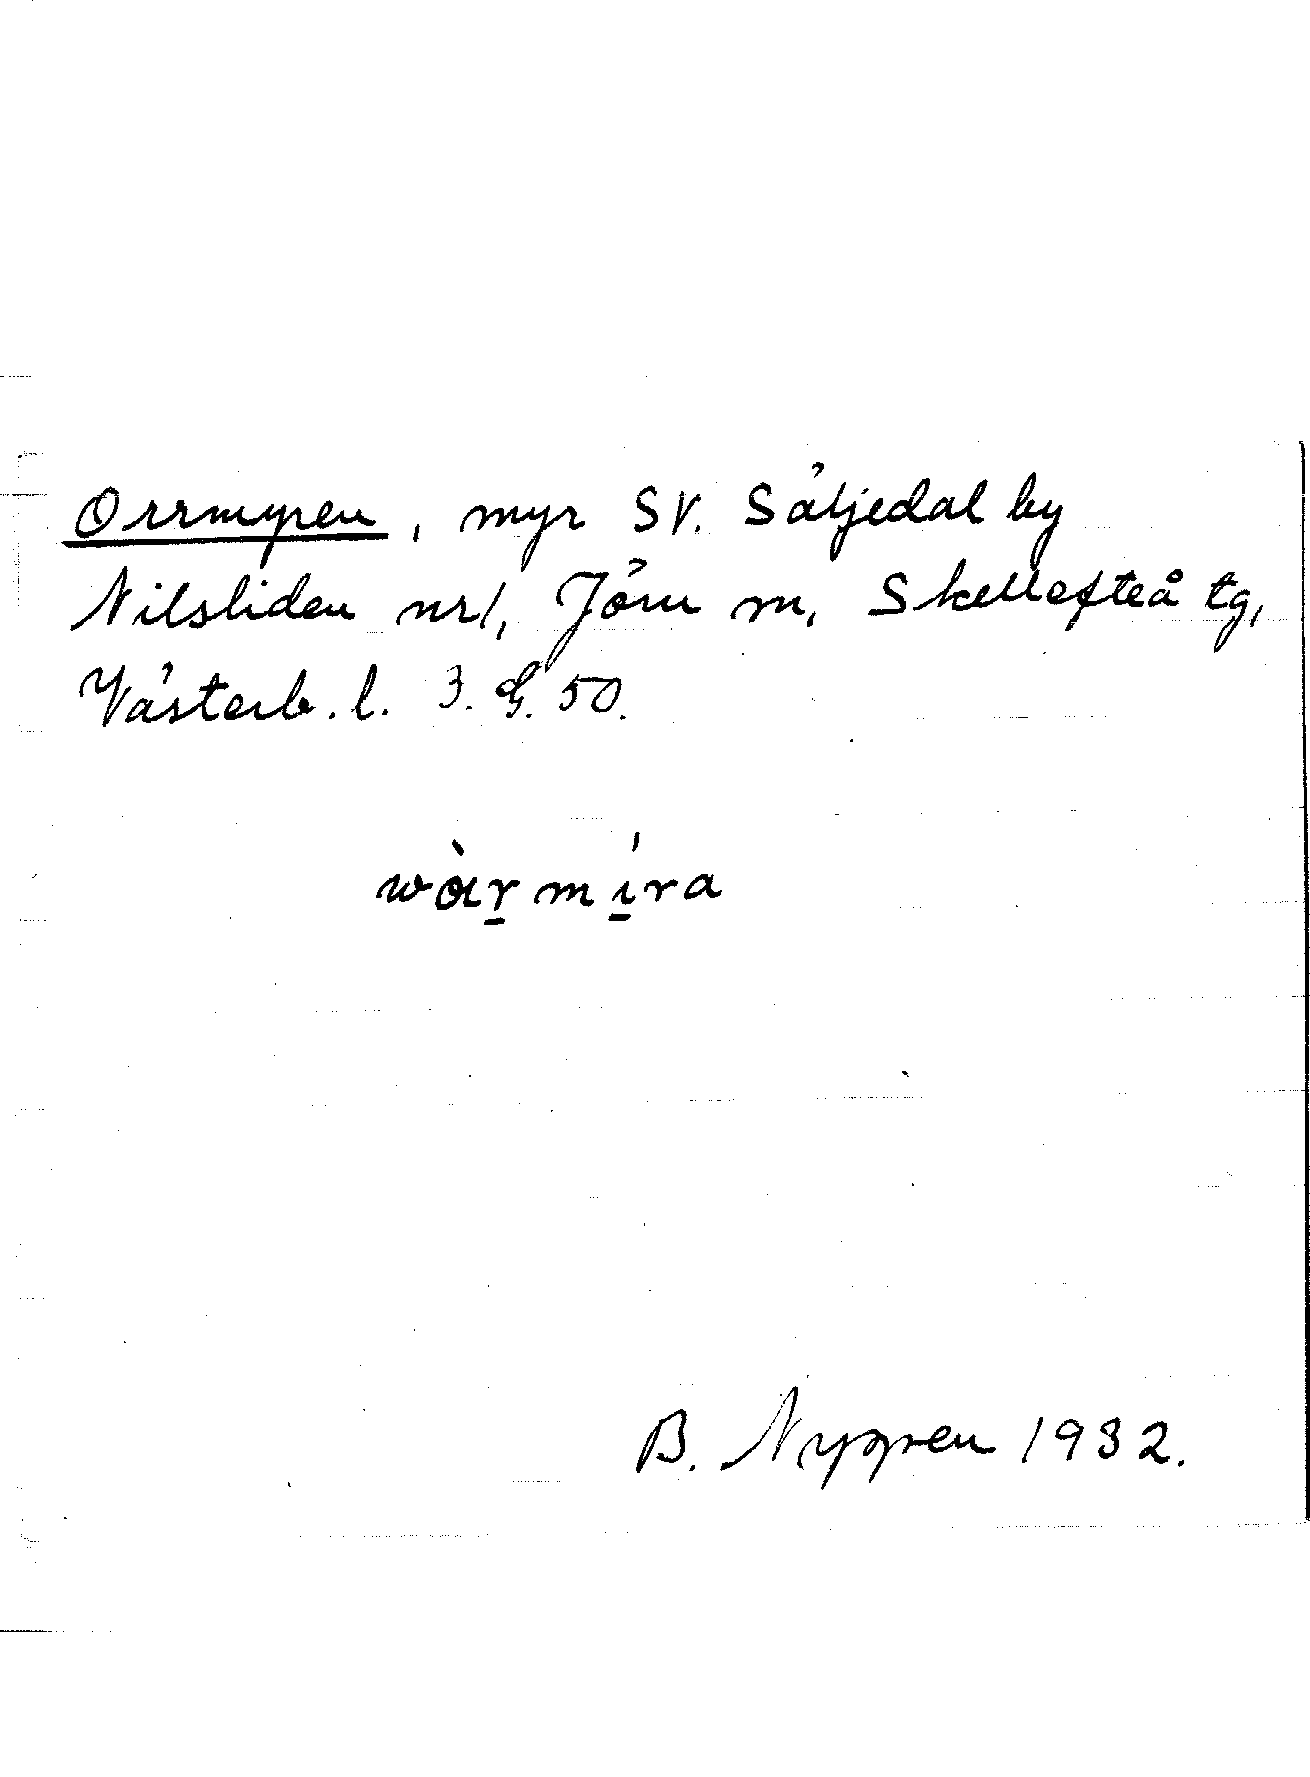 Orrmyren, myr SV. Säljedal by
Nilsliden nr 1, Jörn m, Skellefteå tg,
Västerb. l. 3. G. 50.
wὰɪr̠mí̠ra
B. Nygren 1932.